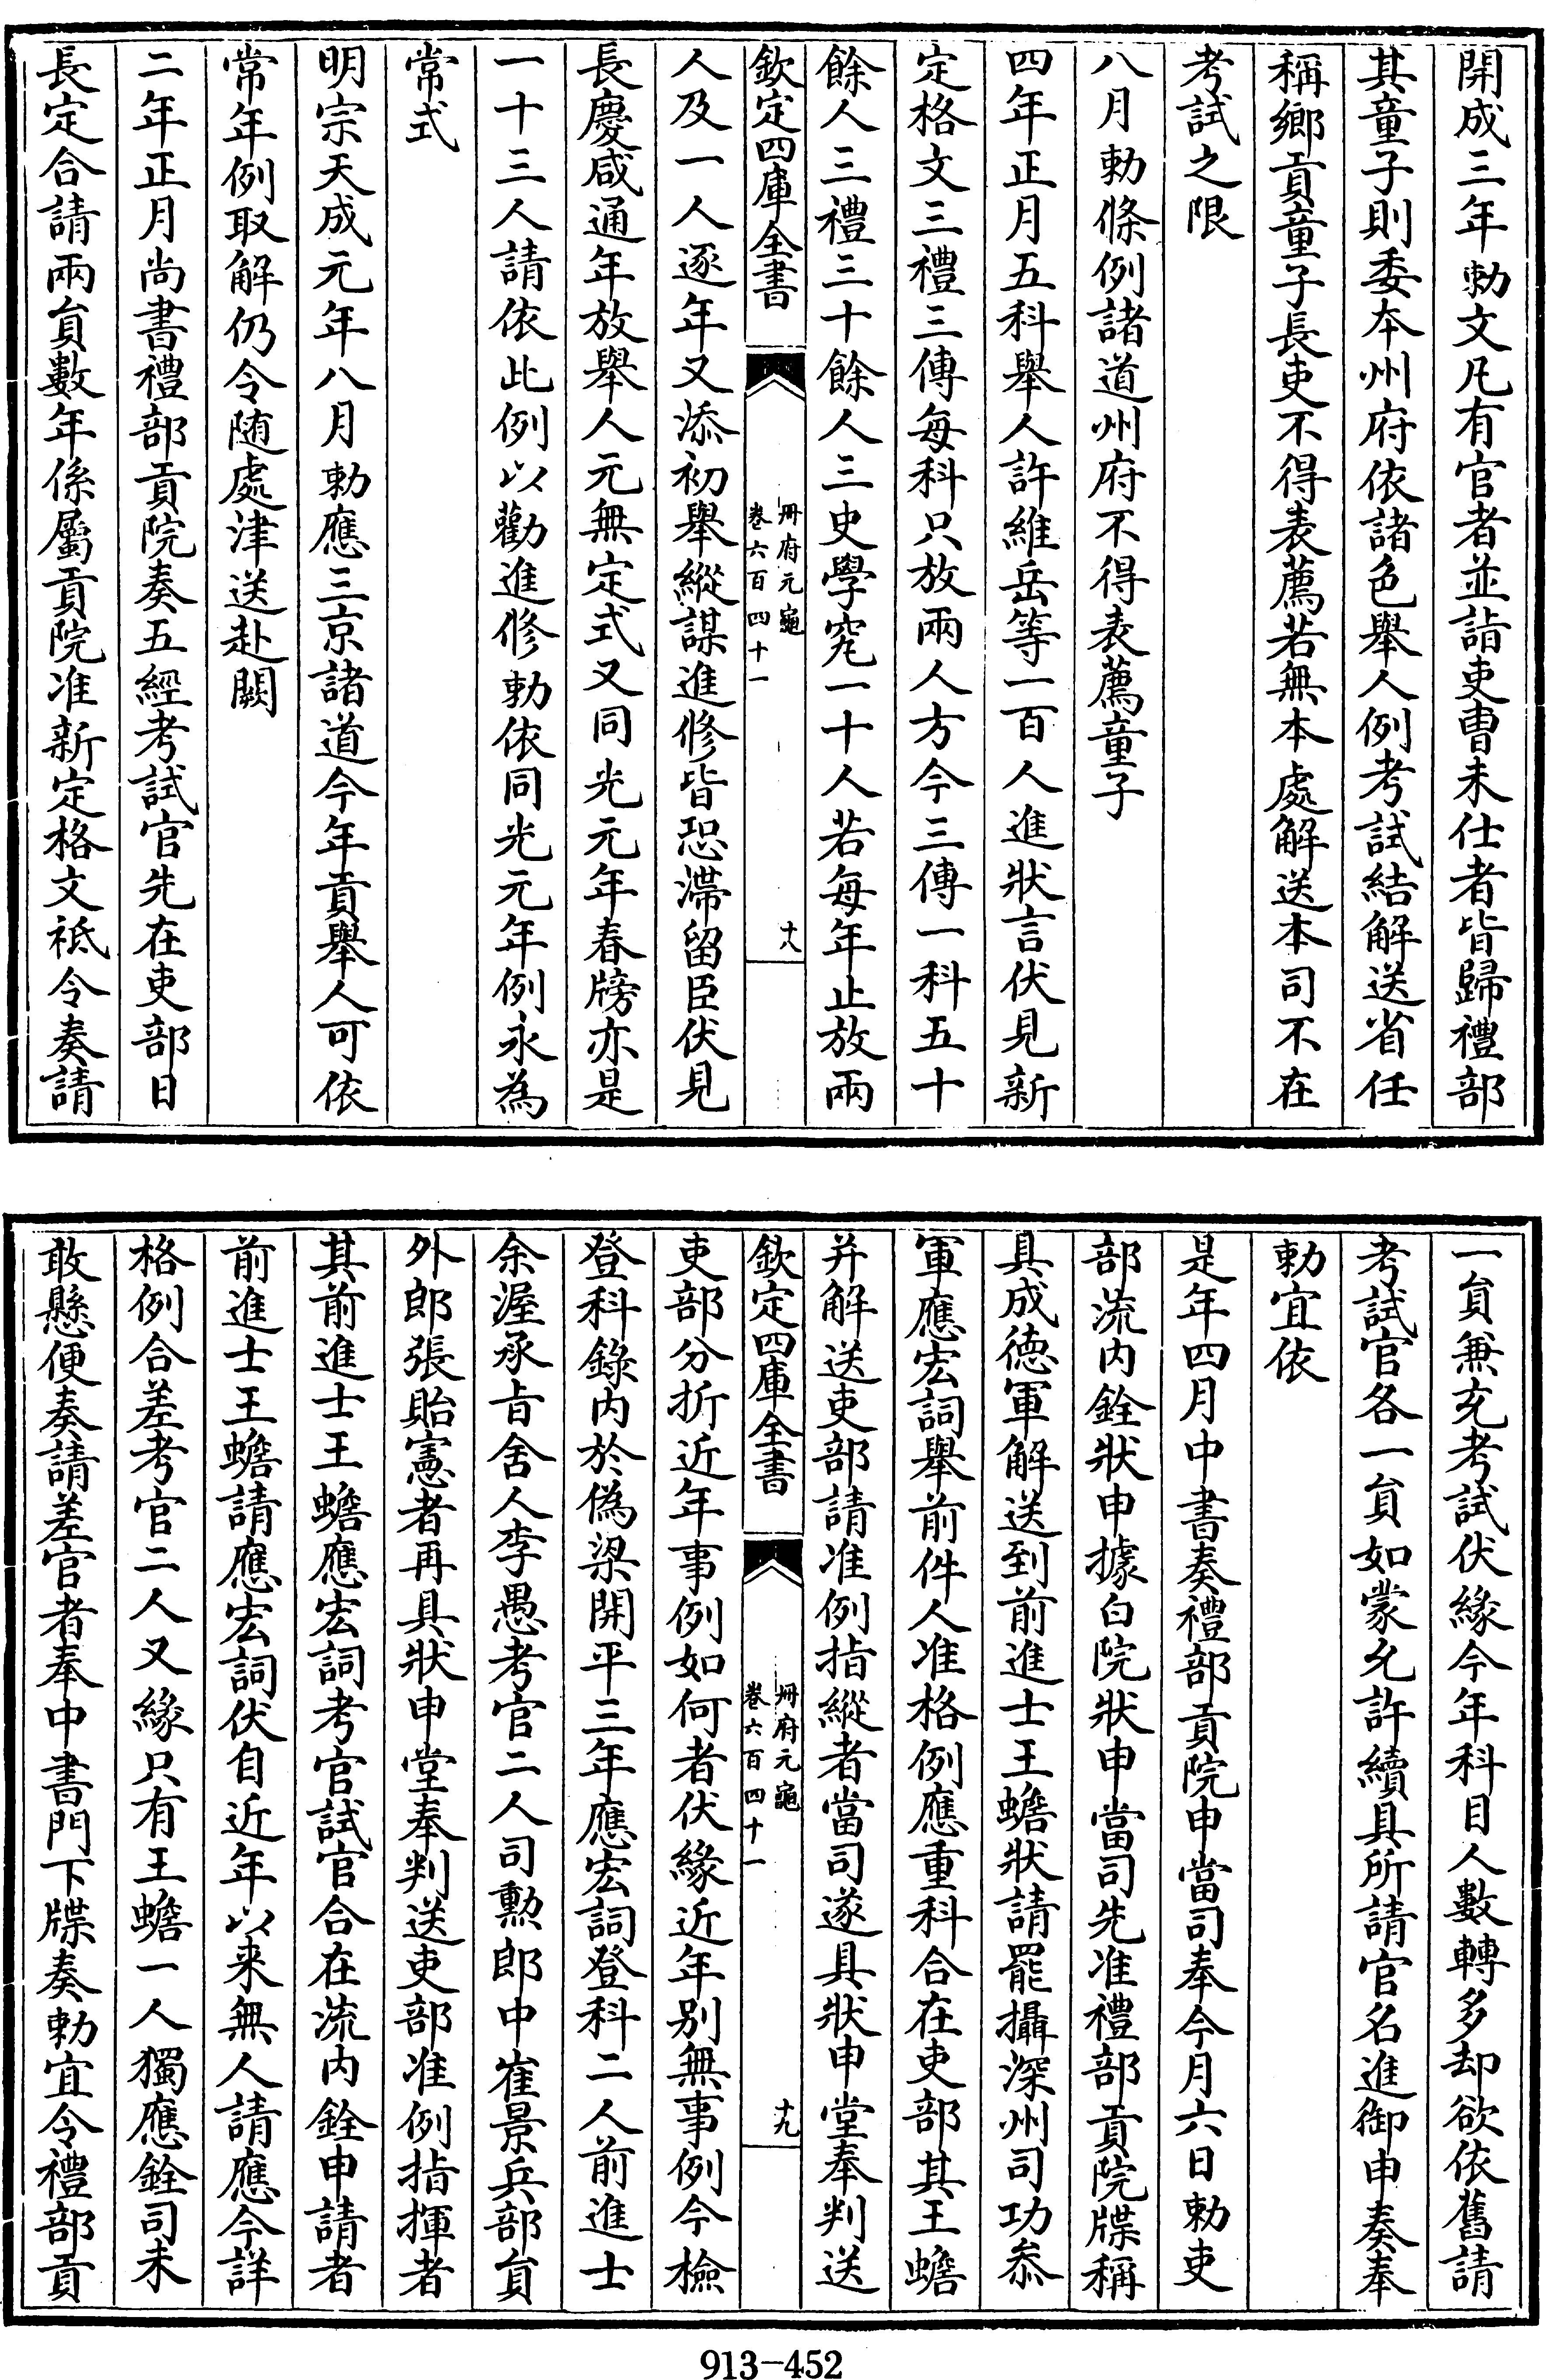 開成三年勅文凡有官者並詣吏曹未仕者皆歸禮部
其童子則委本州府依諸色舉人例考試結解送省任
稱鄉貢童子長吏不得表薦若無本處解送本司不在
考試之限
八月勅條例諸道州府不得表薦童子
四年正月五科舉人許維岳等一百人進狀言伏見新
定格文三禮三傳每科只放兩人方今三傳一科五十
餘人三禮三十餘人三史學究一十人若每年止放兩
欽定四庫全書
冊府元龜
卷六百四十一
十八
人及一人逐年又添初舉縱謀進修皆恐滯留臣伏見
長慶咸通年放舉人元無定式又同光元年春牓亦是
一十三人請依此例以勸進修勅依同光元年例永為
常式
明宗天成元年八月勅應三京諸道今年貢舉人可依
常年例取解仍令随處津送赴闕
二年正月尚書禮部貢院奏五經考試官先在吏部日
長定合請兩貟數年係屬貢院准新定格文祇令奏請
一貟兼充考試伏緣今年科目人數轉多却欲依舊請
考試官各一貟如蒙允許續具所請官名進御申奏奉
勅宜依
是年四月中書奏禮部貢院申當司奉今月六日勅吏
部流内銓狀申據白院狀申當司先准禮部貢院牒稱
具成徳軍解送到前進士王蟾狀請罷攝深州司功叅
軍應宏詞舉前件人准格例應重科合在吏部其王蟾
并解送吏部請准例指縱者當司遂具狀申堂奉判送
欽定四庫全書
冊府元龜
卷六百四十一
十九
吏部分折近年事例如何者伏緣近年别無事例今檢
登科錄内於偽梁開平三年應宏詞登科二人前進士
余渥承旨舍人李愚考官二人司勲郎中崔景兵部貟
外郎張貽憲者再具狀申堂奉判送吏部准例指揮者
其前進士王蟾應宏詞考官試官合在流内銓申請者
前進士王蟾請應宏詞伏自近年以来無人請應今詳
格例合差考官二人又緣只有王蟾一人獨應銓司未
敢懸便奏請差官者奉中書門下牒奏勅宜令禮部貢
913-452